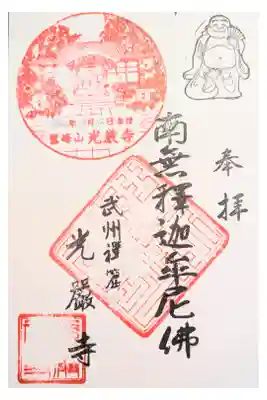 奉拝
南無釋迦牟尼佛
武州禪窟
光嚴寺
光厳寺